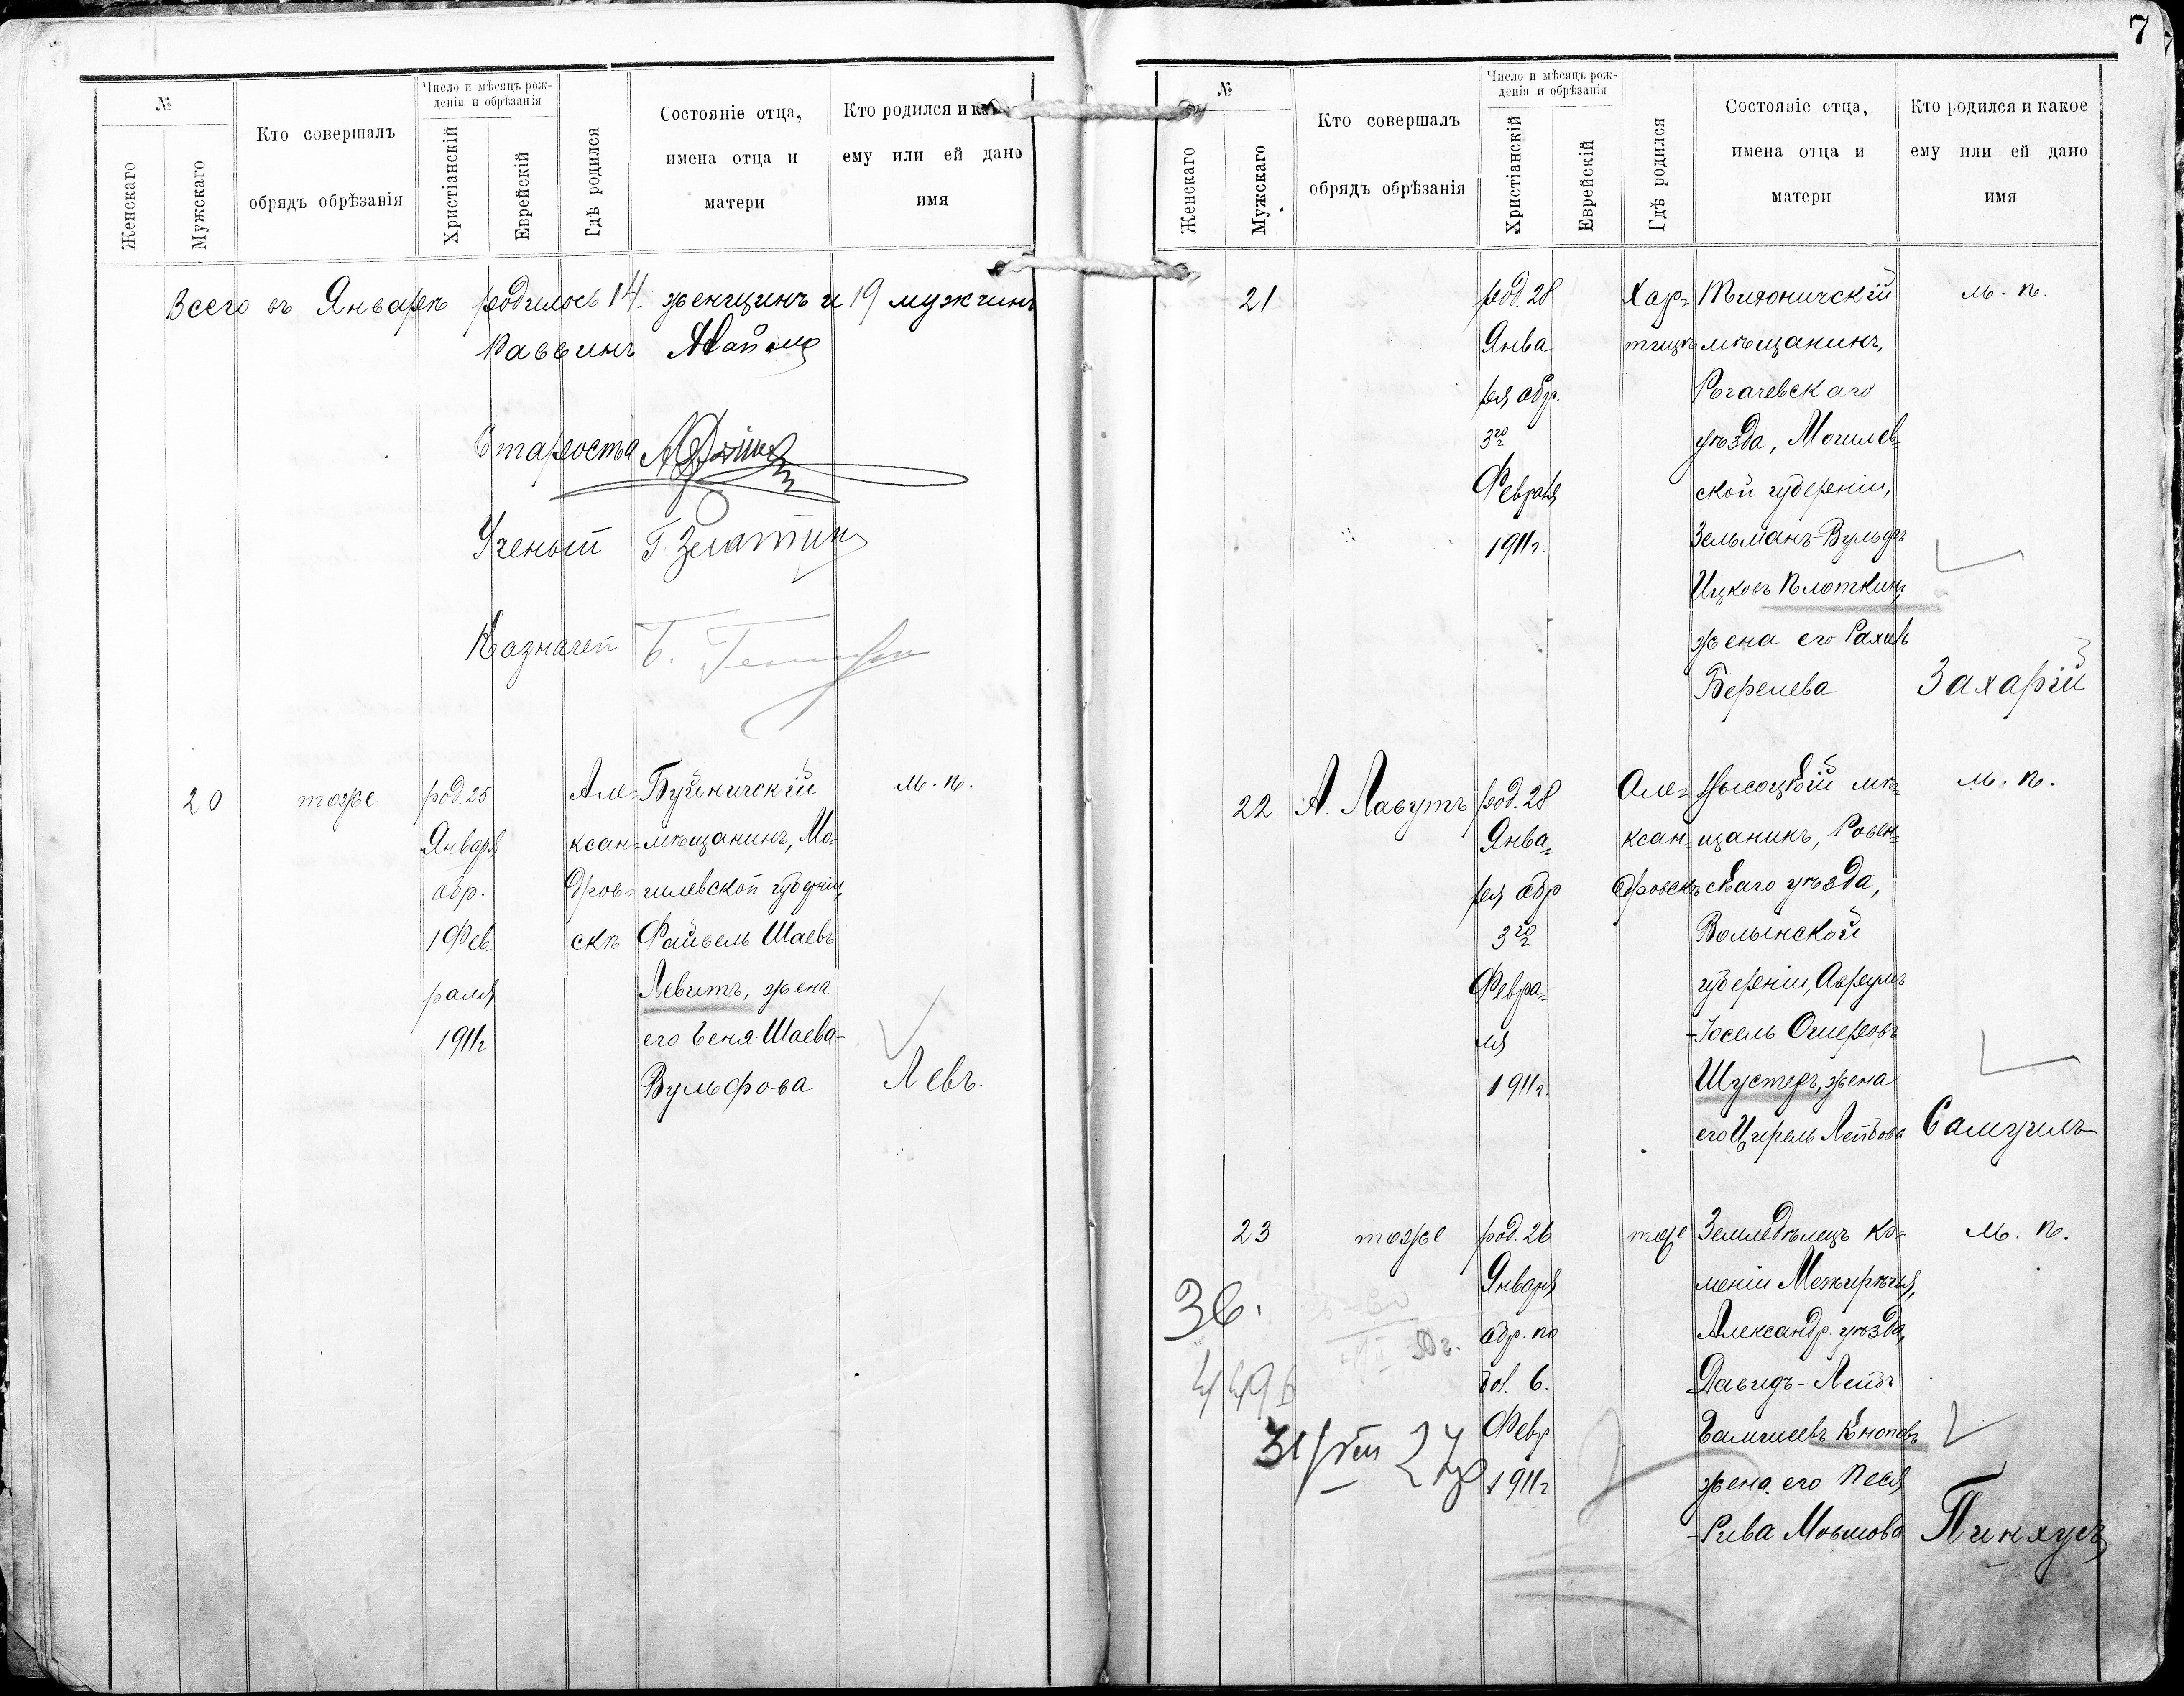 7
№
Женскаго
Мужскаго
Кто совершалъ
обрядъ обрѣзанія
Число и мѣсяцъ рож-
денія и обрѣзанія
Христіанскій
Еврейскій
Гдѣ родился
Состояніе отца,
имена отца и
матери
Кто родился и как
ему или ей дано
имя
Всего въ Январѣ родилось 14. женщинъ и 19 мужчинъ
Раввинъ
Староста
Ученый Г. Золотин
Казначей Б.
20
тоже
род. 25
Января
обр.
1 Фев
раля
1911 г
Але-
ксан-
дров-
скъ
Буйничскій
мѣщанинъ, Мо-
гилевской губерніи,
Файвель Шаевъ
Левитъ, жена
его Беня Шаева-
Вульфова
м. п.
Левъ.
№
Женскаго
Мужскаго
Кто совершалъ
обрядъ обрѣзанія
Число и мѣсяцъ рож-
денія и обрѣзанія
Христіанскій
Еврейскій
Гдѣ родился
Состояніе отца,
имена отца и
матери
Кто родился и какое
ему или ей дано
имя
21
род. 28
Янва
ря обр.
3го
Февраля
1911 г.
Хор-
тицѣ
Тихоничскій
мѣщанинъ,
Рогачевскаго
уѣзда, Могилев-
ской губерніи,
Зельманъ-Вульфъ
Ицковъ Плоткинъ,
жена его Рахиль
Берелева
м. п.
Захарій
22
А. Лавутъ
род. 28
Янва-
ря обр
3го
Февра-
ля
1911 г.
Але-
ксан-
дровскъ
Высоцкій мѣ-
щанинъ, Ровен-
скаго уѣзда,
Волынской
губерніи, Аврумъ
-Іосель Ошеровъ
Шустеръ, жена
его Цирель Лейбова
м. п.
Самуилъ
23
тоже
род. 26
Января
обр. по
бол. 6.
Февр.
1911 г
тоже
Земледѣлецъ ко-
лоніи Межирѣчья,
Александр. уѣзда,
Давидъ-Лейбъ
жена его Песя
-Рива Мовшова
м. п.
Пинхусъ
36.
449
31/VIII 27